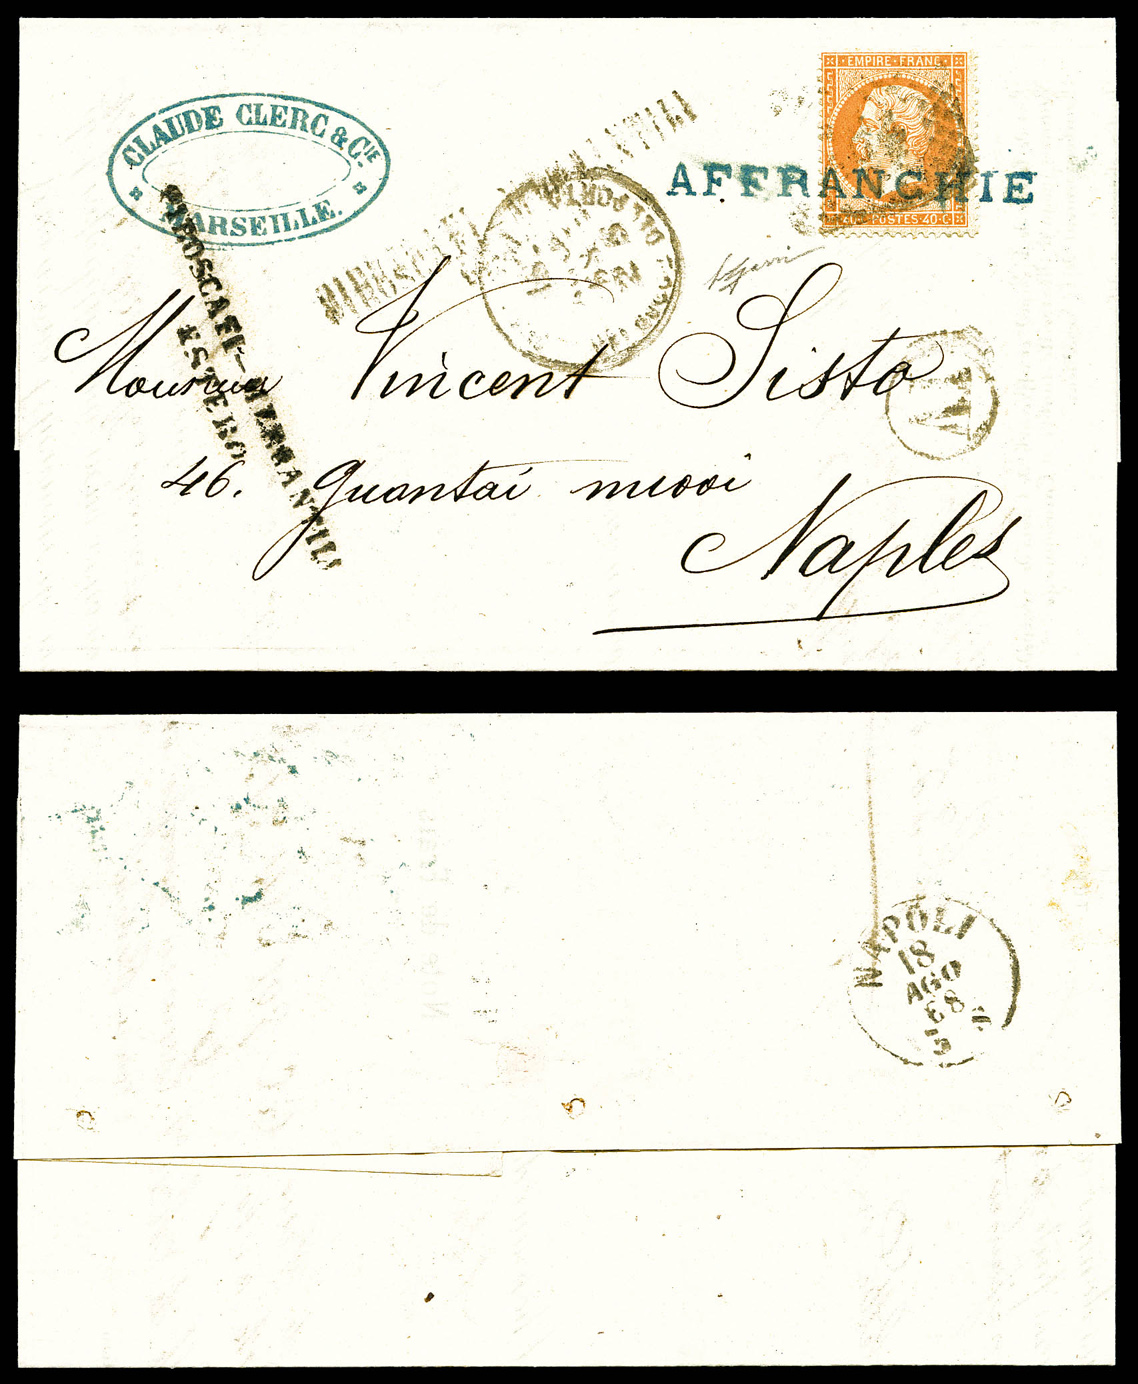 CLAUDE CLERC & CIE
MARSEILLE.
EMPIRE FRANC
POSTES 40 C
AFFRANCHIE
PIROSCAFI-MERCANTILI
ESTERO
Monsieur Vincent Sisto
46. Quantai nuovi
Naples
NAPOLI
18
AGO
68